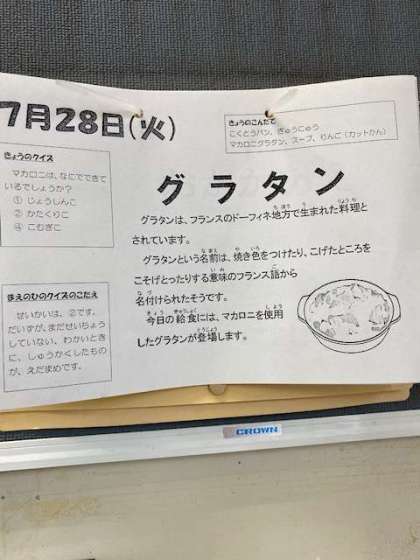 7月28日(火)
きょうのこんだて
こくとうパン、ぎゅうにゅう
マカロニグラタン、スープ、りんご(カットかん)
きょうのクイズ
マカロニは、なにでできて
いるでしょうか?
① じょうしんこ
② かたくりこ
④ こむぎこ
グラタン
グラタンは、フランスのドーフィネ地方で生まれた料理と
されています。
グラタンという名前は、焼き色をつけたり、こげたところを
こそげとったりする意味のフランス語から
名付けられたそうです。
今日の給食には、マカロニを使用
したグラタンが登場します。
まえのひのクイズのこたえ
せいかいは、②です。
だいずが、まだせいちょう
していない、わかいときに、
しゅうかくしたもの
が、えだまめです。
CROWN